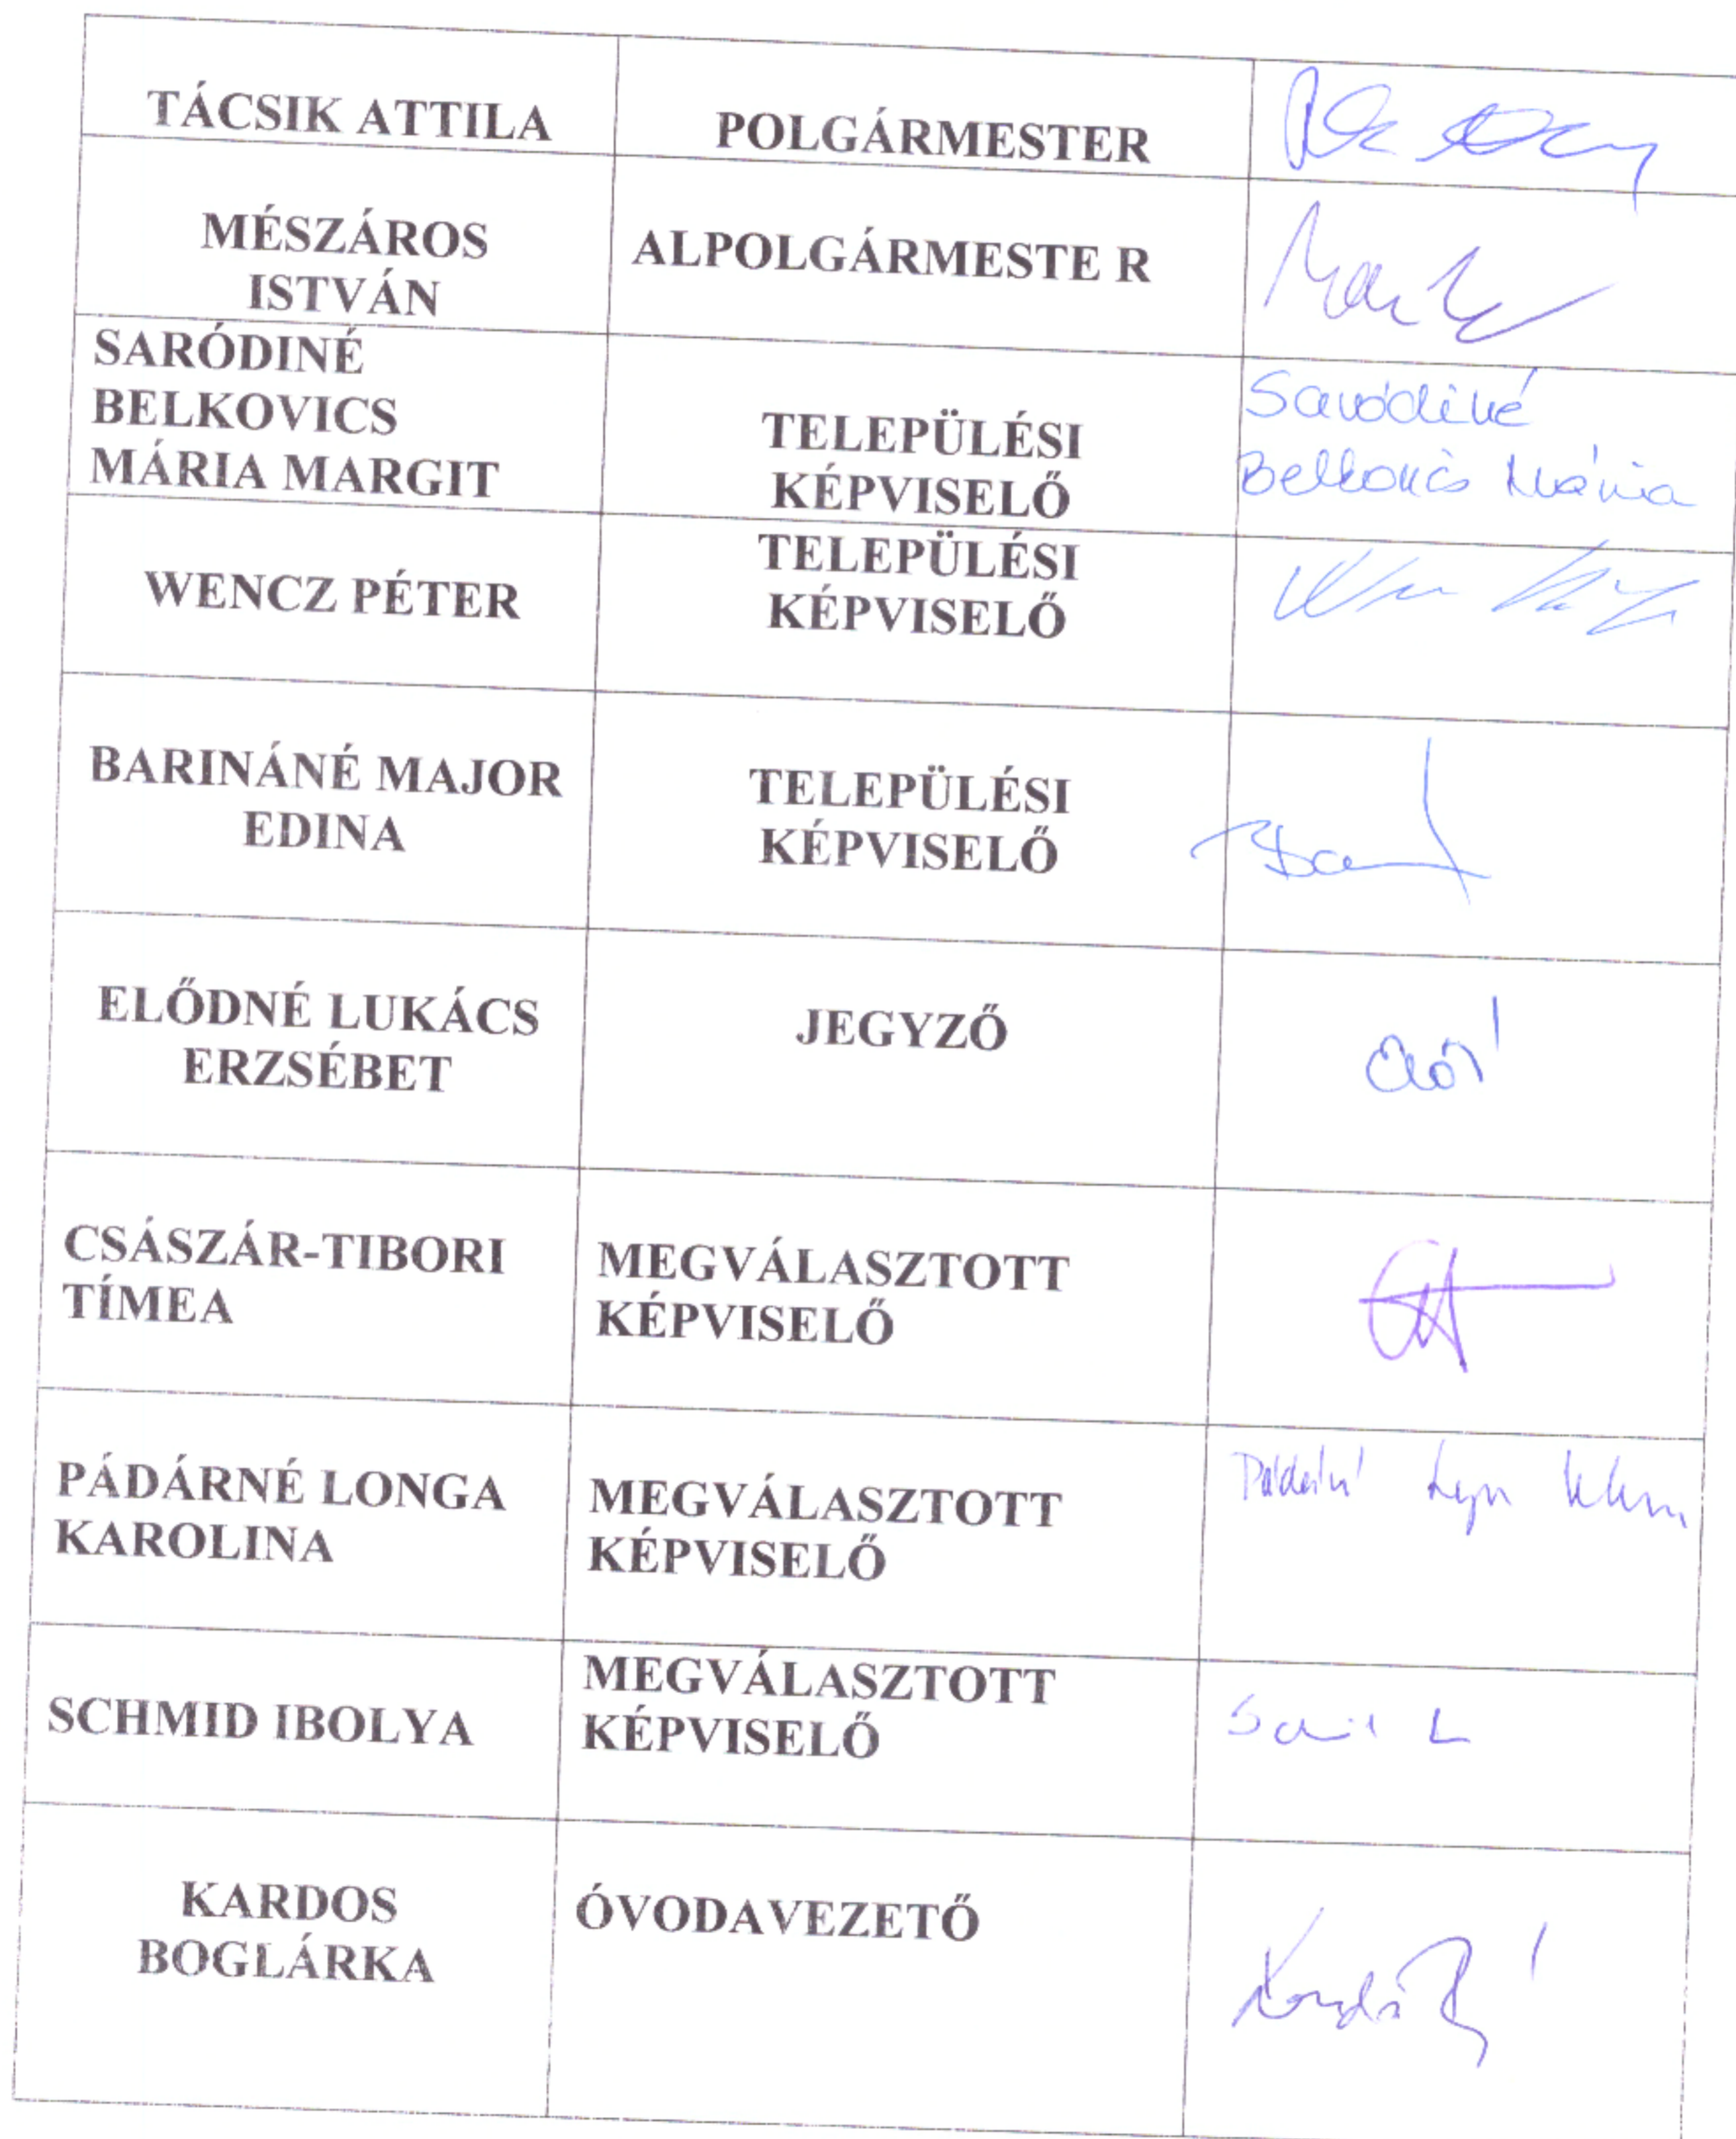 TÁCSIK ATTILA
POLGÁRMESTER
MÉSZÁROS
ISTVÁN
ALPOLGÁRMESTE R
SARÓDINÉ
BELKOVICS
MÁRIA MARGIT
TELEPÜLÉSI
KÉPVISELŐ
Saródiné
Belkovics Mária
WENCZ PÉTER
TELEPÜLÉSI
KÉPVISELŐ
BARINÁNÉ MAJOR
EDINA
TELEPÜLÉSI
KÉPVISELŐ
ELŐDNÉ LUKÁCS
ERZSÉBET
JEGYZŐ
CSÁSZÁR-TIBORI
TÍMEA
MEGVÁLASZTOTT
KÉPVISELŐ
PÁDÁRNÉ LONGA
KAROLINA
MEGVÁLASZTOTT
KÉPVISELŐ
SCHMID IBOLYA
MEGVÁLASZTOTT
KÉPVISELŐ
KARDOS
BOGLÁRKA
ÓVODAVEZETŐ